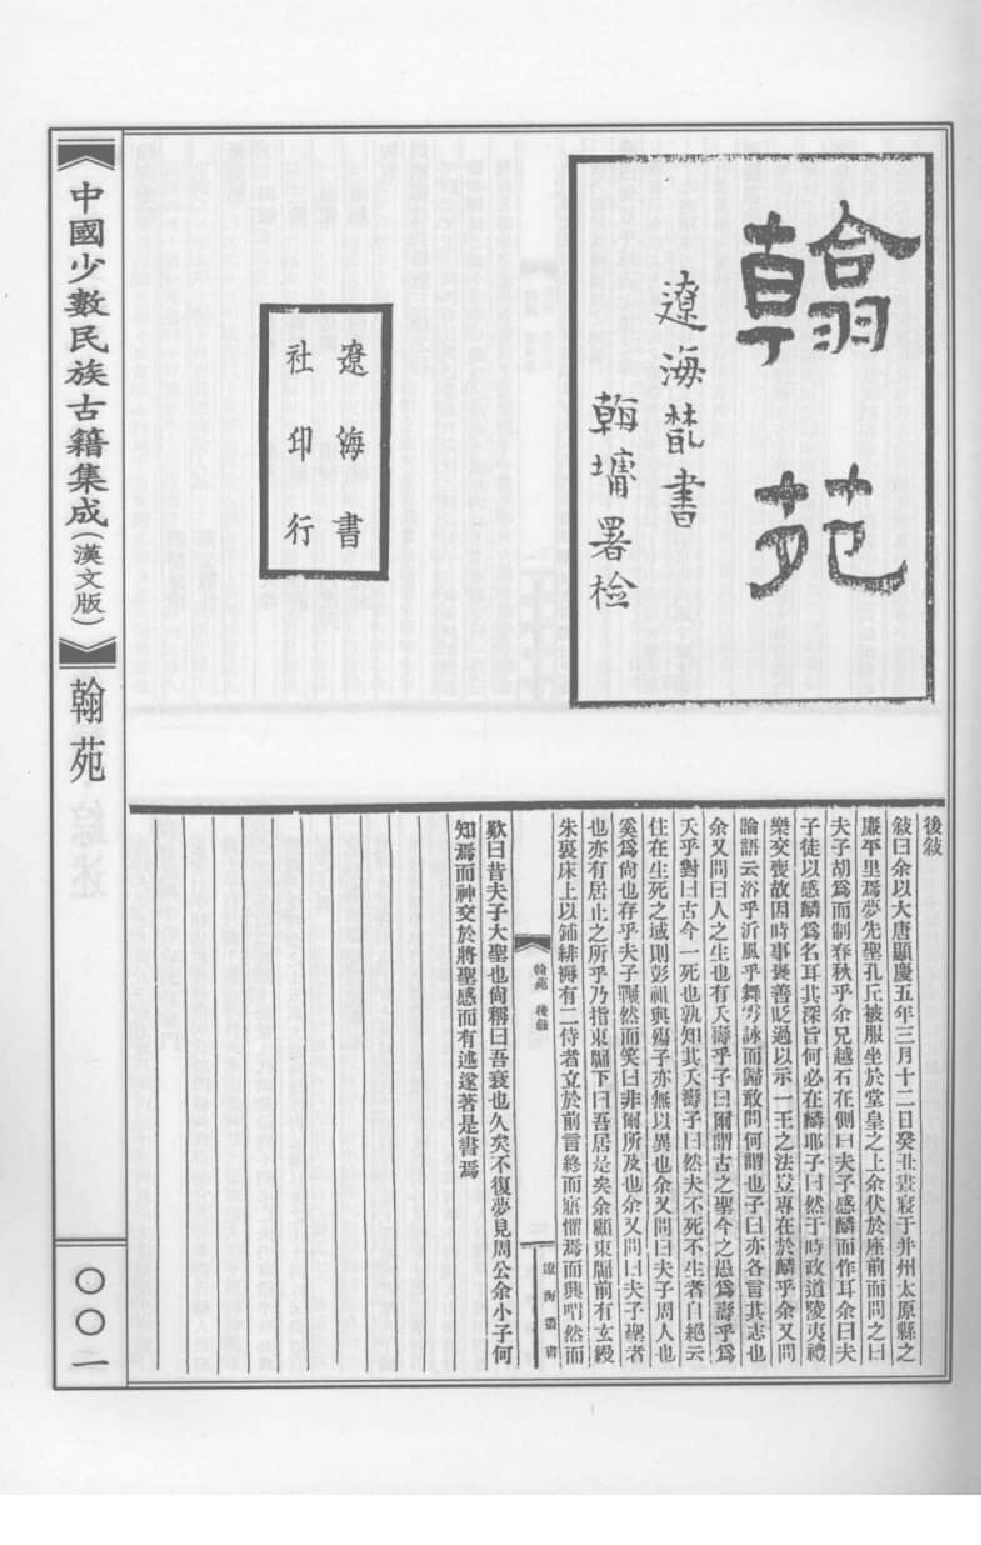 翰苑
遼海叢書
翰墉署檢
遼海書
社印行
後敍
敍曰余以大唐顯慶五年三月十二日癸丑晝寢于并州太原縣之
廉平里焉夢先聖孔丘被服坐於堂皇之上余伏於座前而問之曰
夫子胡爲而制春秋乎余兄越石在側曰夫子感麟而作耳余曰夫
子徒以感麟爲名耳其深旨何必在麟耶子曰然于時政道陵夷禮
樂交喪故因時事褒善貶過以示一王之法豈專在於麟乎余又問
論語云浴乎沂風乎舞雩詠而歸敢問何謂也子曰亦各言其志也
余又問曰人之生也有夭壽乎子曰爾謂古之聖今之愚爲壽乎爲
夭乎對曰古今一死也孰知其夭壽子曰然夫不死不生者自絕云
住在生死之域則彭祖與殤子亦無以異也余又問曰夫子周人也
奚爲尙也存乎夫子囅然而笑曰非爾所及也余又問曰夫子聖者
也亦有居止之所乎乃指東牖下曰吾居是矣余顧東牖前有玄縵
朱裏床上以鋪緋褥有二侍者立於前言終而寤懼焉而興喟然而
翰苑 後敍
遼海叢書
歎曰昔夫子大聖也尙稱曰吾衰也久矣不復夢見周公余小子何
知焉而神交於將聖感而有述遂著是書焉
中國少數民族古籍集成(漢文版)
翰苑
〇〇一